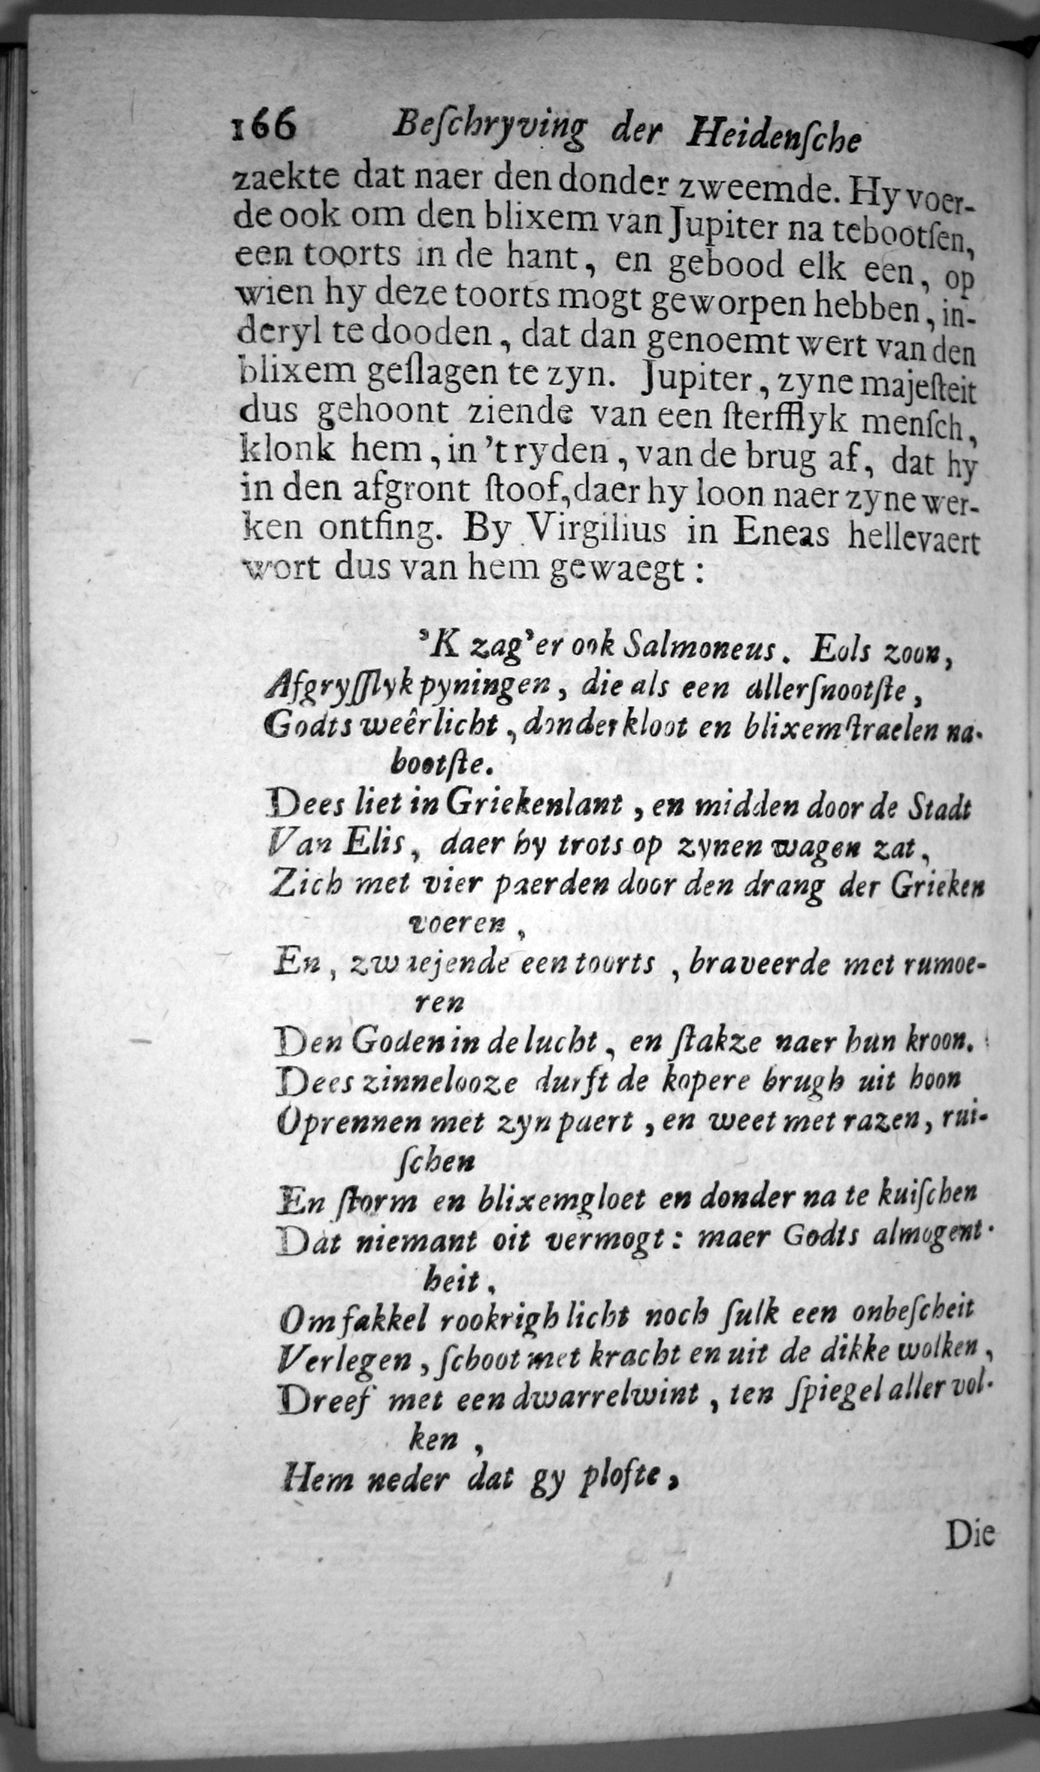 166 Beſchryving der Heidenſche
zaekte dat naer den donder zweemde. Hy voer-
de ook om den blixem van Jupiter na tebootſen,
een toorts in de hant, en gebood elk een, op
wien hy deze toorts mogt geworpen hebben, in-
deryl te dooden, dat dan genoemt wert van den
blixem geſlagen te zyn. Jupiter, zyne majeſteit
dus gehoont ziende van een ſterfflyk menſch,
klonk hem, in 't ryden, van de brug af, dat hy
in den afgront ſtoof, daer hy loon naer zyne wer-
ken ontfing. By Virgilius in Eneas hellevaert
wort dus van hem gewaegt:
'K zag'er ook Salmoneus. Eols zoon,
Afgryſſlyk pyningen, die als een allerſnootſte,
Godts weêrlicht, donderkloot en blixemſtraelen na-
bootſte.
Dees liet in Griekenlant, en midden door de Stadt
Van Elis, daer hy trots op zynen wagen zat,
Zich met vier paerden door den drang der Grieken
voeren,
En, zwaejende een toorts, braveerde met rumoe-
ren
Den Goden in de lucht, en ſtakze naer hun kroon.
Dees zinnelooze durft de kopere brugh uit hoon
Oprennen met zyn paert, en weet met razen, rui-
ſchen
En ſtorm en blixemgloet en donder na te kuiſchen
Dat niemant oit vermogt: maer Godts almogent-
heit,
Om fakkel rookrigh licht noch ſulk een onbeſcheit
Verlegen, ſchoot met kracht en uit de dikke wolken,
Dreef met een dwarrelwint, ten ſpiegel aller vol-
ken,
Hem neder dat gy plofte,
Die